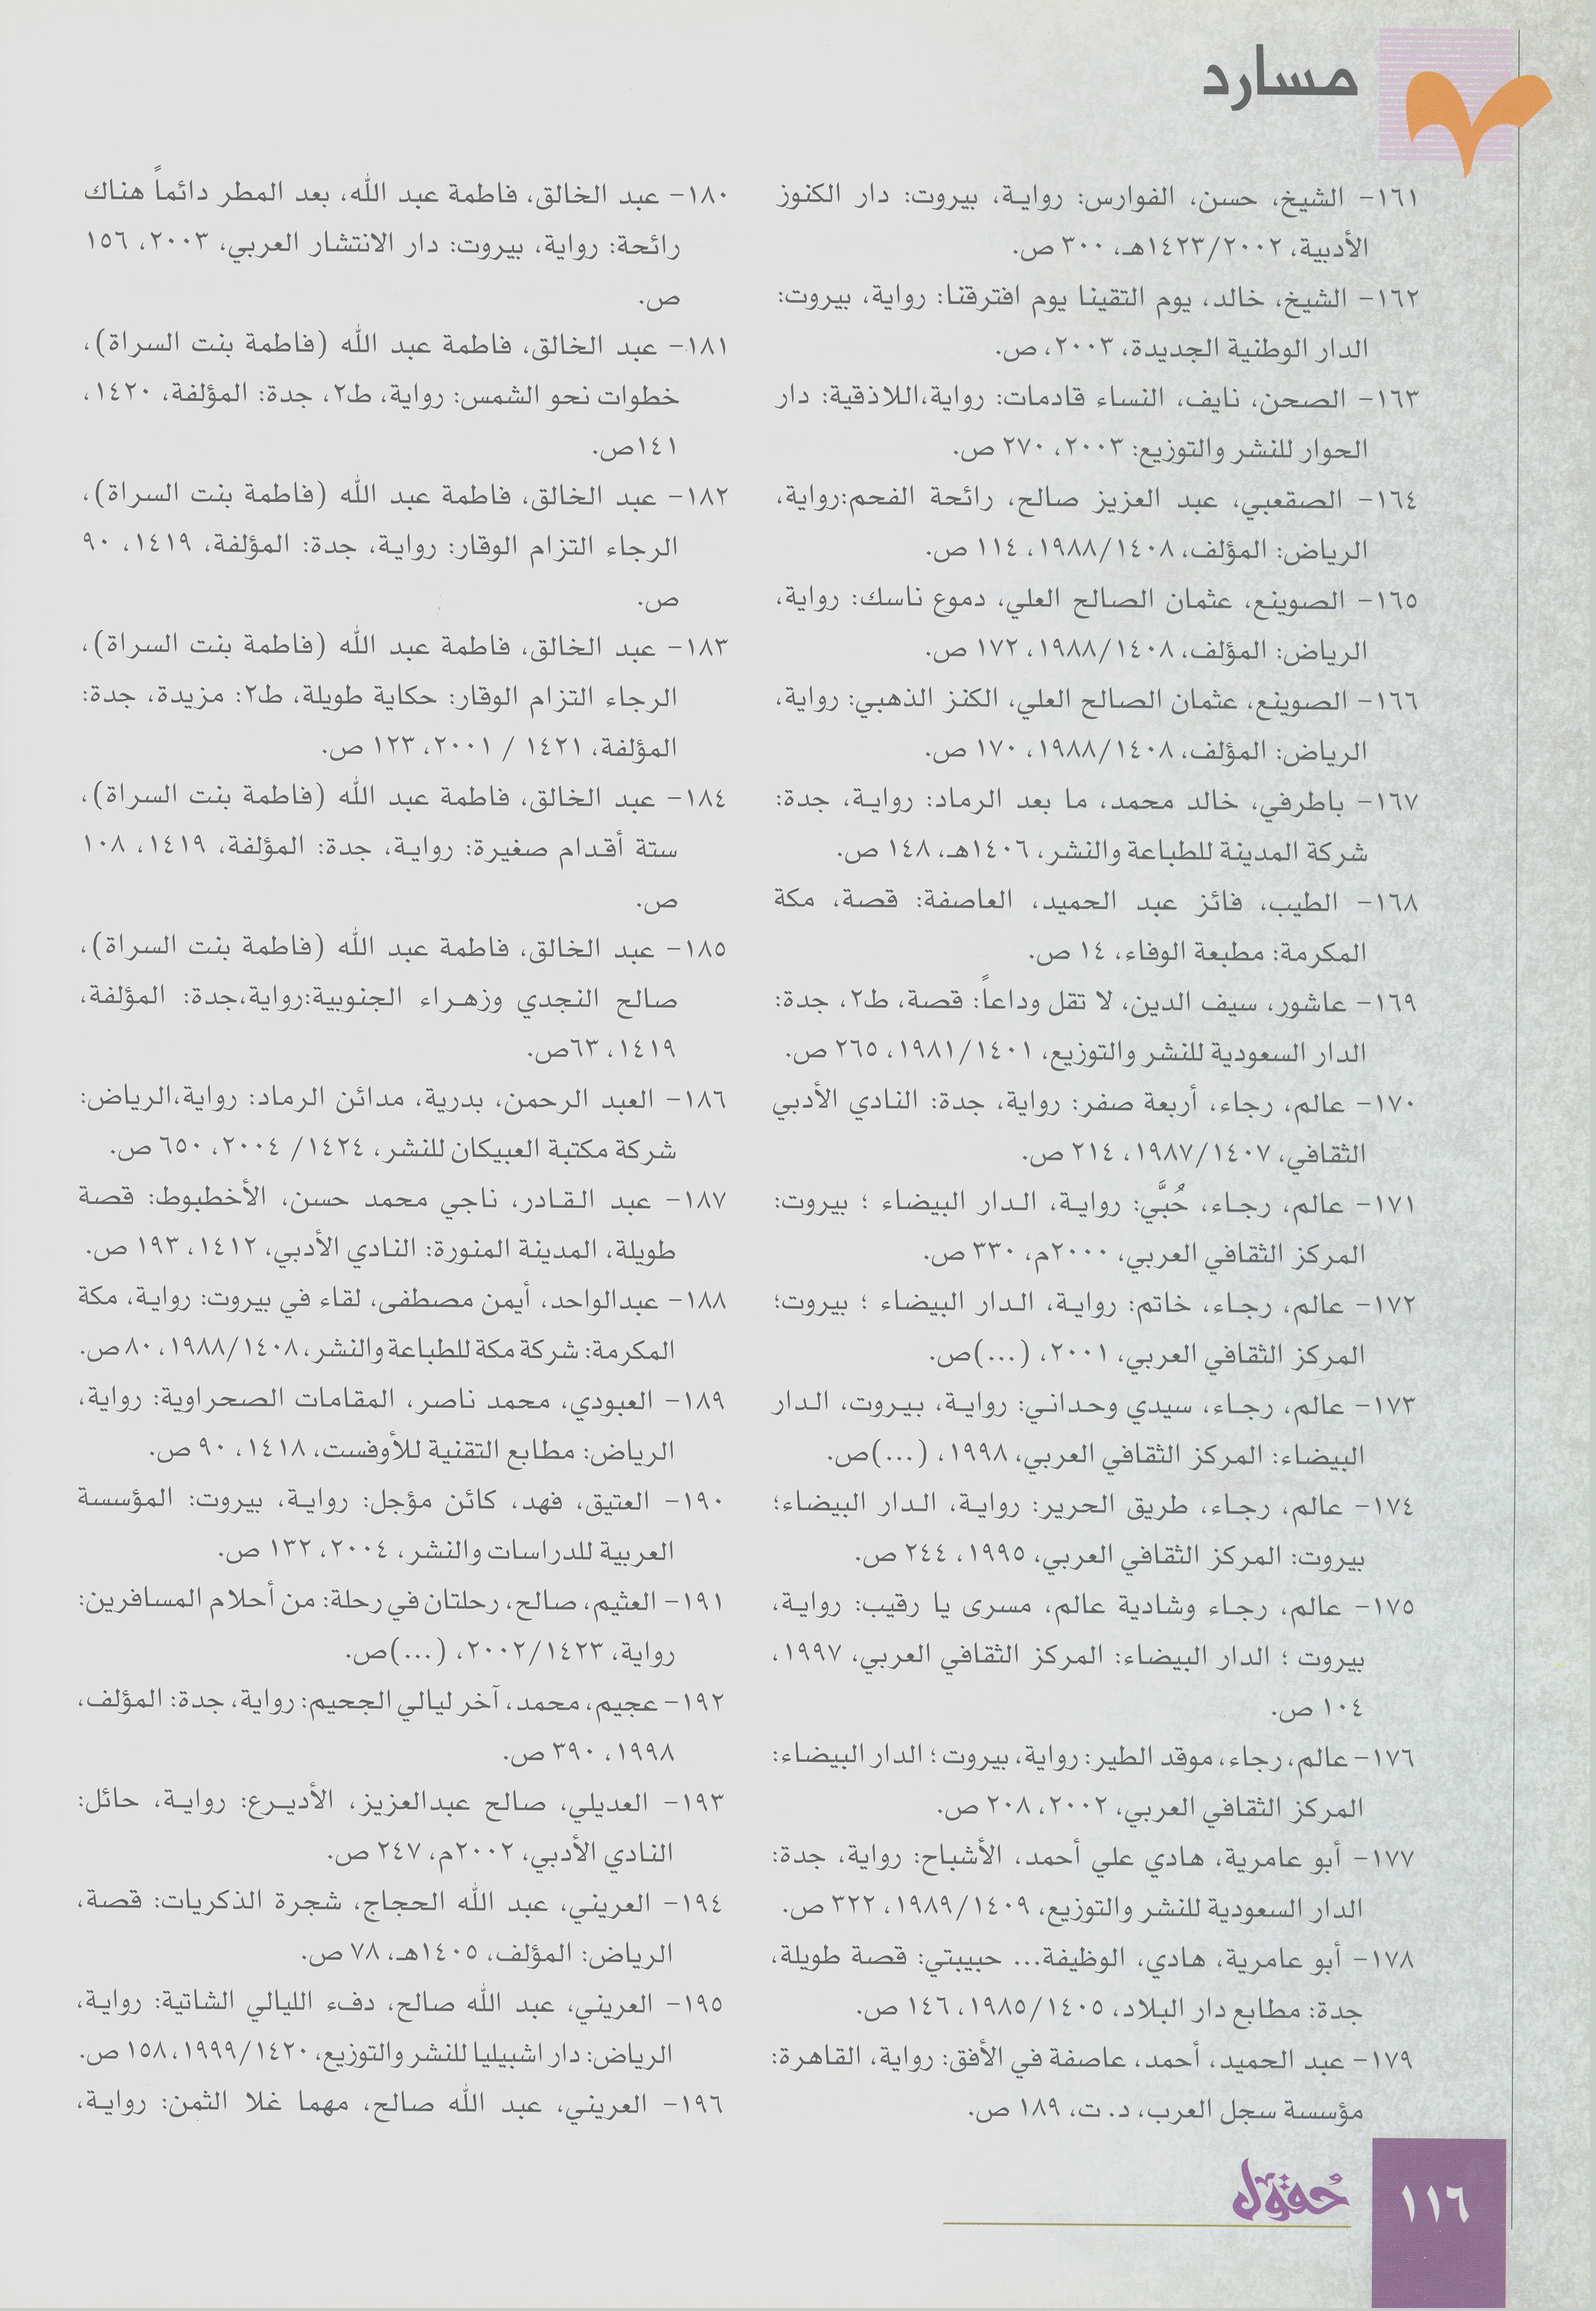 مسارد
١٦١- الشيخ، حسن، الفوارس: رواية، بيروت: دار الكنوز
الأدبية، ١٤٢٣/٢٠٠٢هـ، ٣٠٠ ص.
١٦٢- الشيخ، خالد، يوم التقينا يوم افترقنا: رواية، بيروت:
الدار الوطنية الجديدة، ٢٠٠٣، ص.
١٦٣- الصحن، نايف، النساء قادمات: رواية،اللاذقية: دار
الحوار للنشر والتوزيع: ٢٠٠٣، ٢٧٠ ص.
١٦٤- الصقعبي، عبد العزيز صالح، رائحة الفحم:رواية،
الرياض: المؤلف، ١٩٨٨/١٤٠٨، ١١٤ ص.
١٦٥- الصوينع، عثمان الصالح العلي، دموع ناسك: رواية،
الرياض: المؤلف، ١٩٨٨/١٤٠٨، ١٧٢ ص.
١٦٦- الصوينع، عثمان الصالح العلي، الكنز الذهبي: رواية،
الرياض: المؤلف، ١٩٨٨/١٤٠٨، ١٧٠ ص.
١٦٧- باطرفي، خالد محمد، ما بعد الرماد: رواية، جدة:
شركة المدينة للطباعة والنشر، ١٤٠٦هـ، ١٤٨ ص.
١٦٨- الطيب، فائز عبد الحميد، العاصفة: قصة، مكة
المكرمة: مطبعة الوفاء، ١٤ ص.
١٦٩- عاشور، سيف الدين، لا تقل وداعاً: قصة، ط٢، جدة:
الدار السعودية للنشر والتوزيع، ١٩٨١/١٤٠١، ٢٦٥ ص.
١٧٠- عالم، رجاء، أربعة صفر: رواية، جدة: النادي الأدبي
الثقافي، ١٩٨٧/١٤٠٧، ٢١٤ ص.
١٧١- عالم، رجاء، حُبَّي: رواية، الدار البيضاء ؛ بيروت:
المركز الثقافي العربي، ٢٠٠٠م، ٣٣٠ ص.
١٧٢- عالم، رجاء، خاتم: رواية، الدار البيضاء ؛ بيروت؛
المركز الثقافي العربي، ٢٠٠١، (...)ص.
١٧٣- عالم، رجاء، سيدي وحداني: رواية، بيروت، الدار
البيضاء: المركز الثقافي العربي، ١٩٩٨، (...)ص.
١٧٤- عالم، رجاء، طريق الحرير: رواية، الدار البيضاء؛
بيروت: المركز الثقافي العربي، ١٩٩٥، ٢٤٤ ص.
١٧٥- عالم، رجاء وشادية عالم، مسرى يا رقيب: رواية،
بيروت ؛ الدار البيضاء: المركز الثقافي العربي، ١٩٩٧،
١٠٤ ص.
١٧٦- عالم، رجاء، موقد الطير: رواية، بيروت ؛ الدار البيضاء:
المركز الثقافي العربي، ٢٠٠٢، ٢٠٨ ص.
١٧٧- أبو عامرية، هادي علي أحمد، الأشباح: رواية، جدة:
الدار السعودية للنشر والتوزيع، ١٩٨٩/١٤٠٩، ٣٢٢ ص.
١٧٨- أبو عامرية، هادي، الوظيفة... حبيبتي: قصة طويلة،
جدة: مطابع دار البلاد، ١٩٨٥/١٤٠٥، ١٤٦ ص.
١٧٩- عبد الحميد، أحمد، عاصفة في الأفق: رواية، القاهرة:
مؤسسة سجل العرب، د. ت، ١٨٩ ص.
١٨٠- عبد الخالق، فاطمة عبد الله، بعد المطر دائماً هناك
رائحة: رواية، بيروت: دار الانتشار العربي، ٢٠٠٣، ١٥٦
ص.
١٨١- عبد الخالق، فاطمة عبد الله (فاطمة بنت السراة)،
خطوات نحو الشمس: رواية، ط٢، جدة: المؤلفة، ١٤٢٠،
١٤١ص.
١٨٢- عبد الخالق، فاطمة عبد الله (فاطمة بنت السراة)،
الرجاء التزام الوقار: رواية، جدة: المؤلفة، ١٤١٩، ٩٠
ص.
١٨٣- عبد الخالق، فاطمة عبد الله (فاطمة بنت السراة)،
الرجاء التزام الوقار: حكاية طويلة، ط٢: مزيدة، جدة:
المؤلفة، ١٤٢١ / ٢٠٠١، ١٢٣ ص.
١٨٤- عبد الخالق، فاطمة عبد الله (فاطمة بنت السراة)،
ستة أقدام صغيرة: رواية، جدة: المؤلفة، ١٤١٩، ١٠٨
ص.
١٨٥- عبد الخالق، فاطمة عبد الله (فاطمة بنت السراة)،
صالح النجدي وزهراء الجنوبية:رواية،جدة: المؤلفة،
١٤١٩، ٦٣ص.
١٨٦- العبد الرحمن، بدرية، مدائن الرماد: رواية،الرياض:
شركة مكتبة العبيكان للنشر، ١٤٢٤/ ٢٠٠٤، ٦٥٠ ص.
١٨٧- عبد القادر، ناجي محمد حسن، الأخطبوط: قصة
طويلة، المدينة المنورة: النادي الأدبي، ١٤١٢، ١٩٣ ص.
١٨٨- عبدالواحد، أيمن مصطفى، لقاء في بيروت: رواية، مكة
المكرمة: شركة مكة للطباعة والنشر، ١٩٨٨/١٤٠٨، ٨٠ ص.
١٨٩- العبودي، محمد ناصر، المقامات الصحراوية: رواية،
الرياض: مطابع التقنية للأوفست، ١٤١٨، ٩٠ ص.
١٩٠- العتيق، فهد، كائن مؤجل: رواية، بيروت: المؤسسة
العربية للدراسات والنشر، ٢٠٠٤، ١٣٢ ص.
١٩١- العثيم، صالح، رحلتان في رحلة: من أحلام المسافرين:
رواية، ٢٠٠٢/١٤٢٣، (...)ص.
١٩٢- عجيم، محمد، آخر ليالي الجحيم: رواية، جدة: المؤلف،
١٩٩٨، ٣٩٠ ص.
١٩٣- العديلي، صالح عبدالعزيز، الأديرع: رواية، حائل:
النادي الأدبي، ٢٠٠٢م، ٢٤٧ ص.
١٩٤- العريني، عبد الله الحجاج، شجرة الذكريات: قصة،
الرياض: المؤلف، ١٤٠٥هـ، ٧٨ ص.
١٩٥- العريني، عبد الله صالح، دفء الليالي الشاتية: رواية،
الرياض: دار اشبيليا للنشر والتوزيع، ١٩٩٩/١٤٢٠، ١٥٨ ص.
١٩٦- العريني، عبد الله صالح، مهما غلا الثمن: رواية،
حُقول
١١٦